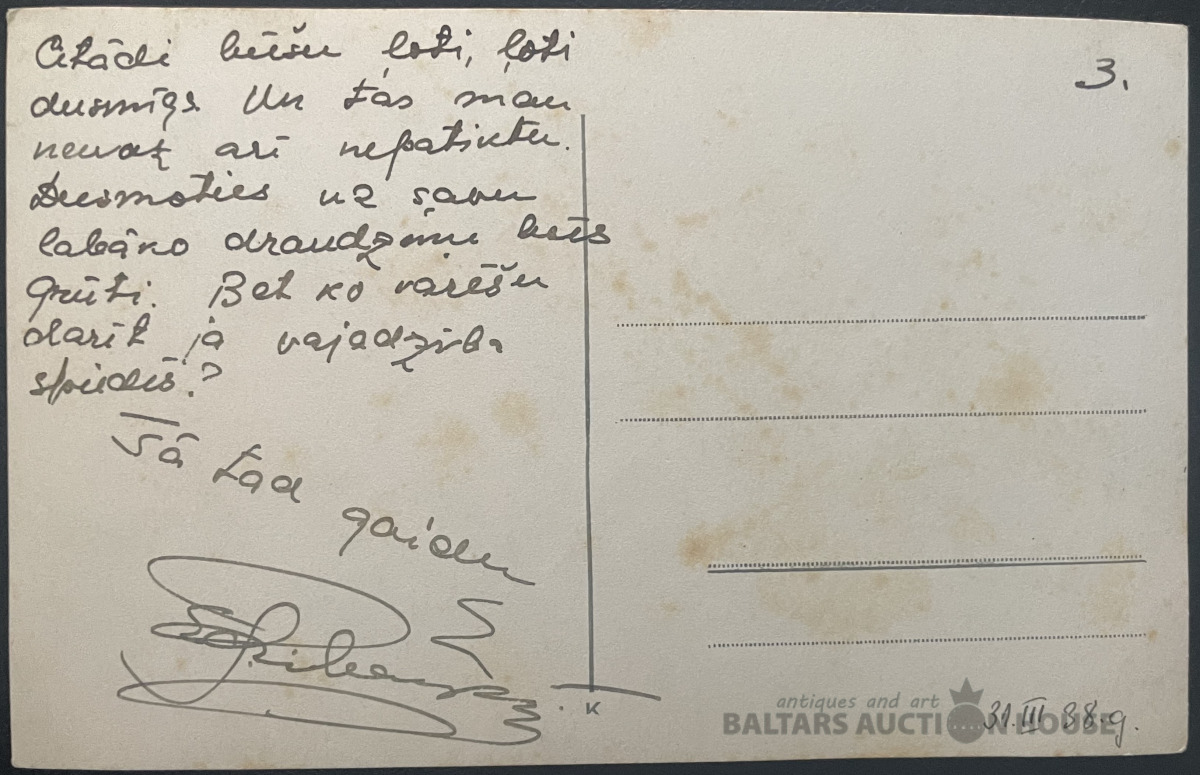 Citādi būšu ļoti, ļoti
dusmīgs Un tas man
nemaz arī nepatiktu.
Dusmoties uz savu
labāko draudzeni būs
grūti. Bet ko varēšu
darīt ja vajadzība
spiedīs?
Tā tad
gaidu
3.
K
antiques and art
BALTARS AUCTION HOUSE
31.III 38.g.